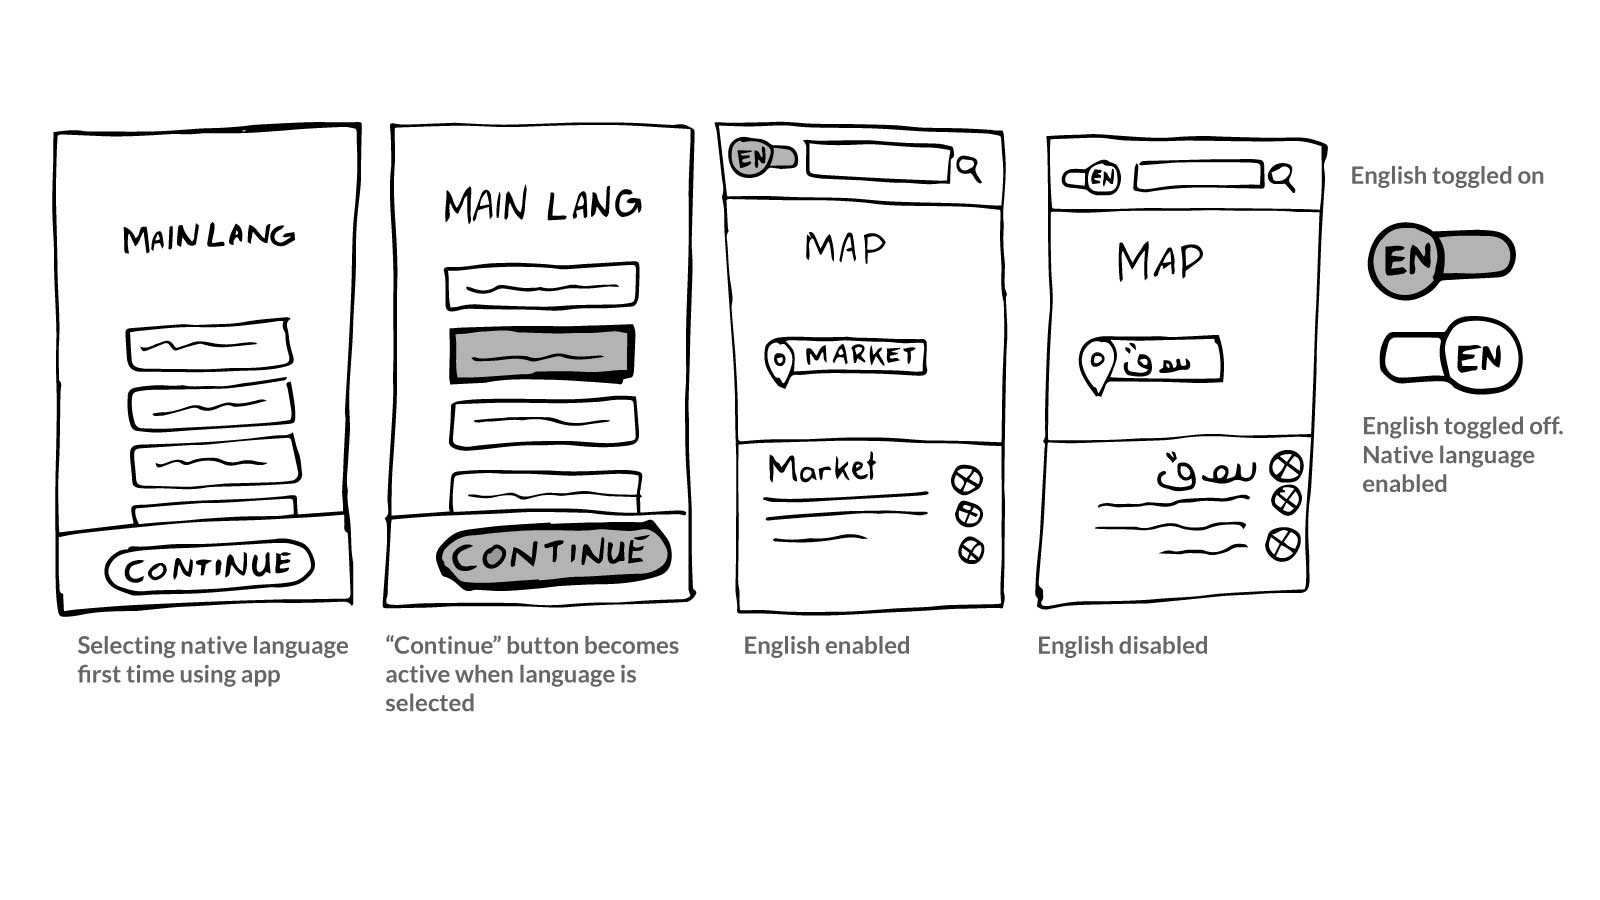 MAIN LANG
CONTINUE
Selecting native language
first time using app
MAIN LANG
CONTINUE
“Continue” button becomes
active when language is
selected
EN
MAP
MARKET
Market
English enabled
EN
MAP
سوق
سوق
English disabled
English toggled on
EN
EN
English toggled off.
Native language
enabled